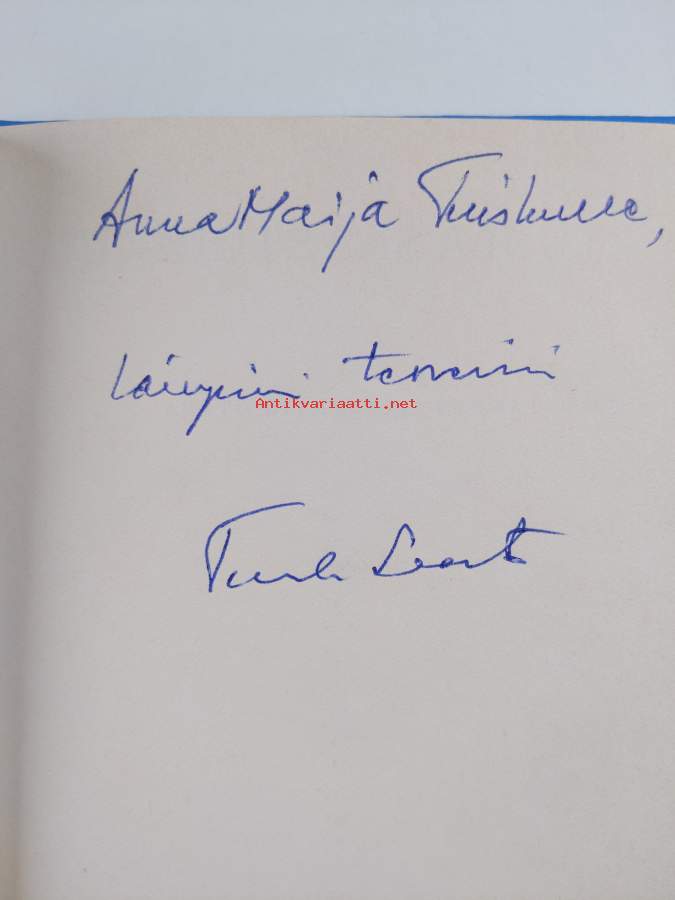 Anna Maija Tuiskulle,
lämpimin terveisin
Antikvariaatti.net
Tuula